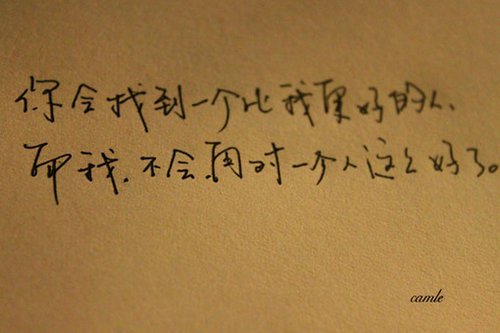 你会找到一个比我更好的人、
而我，不会再对一个人这么好了。
camle